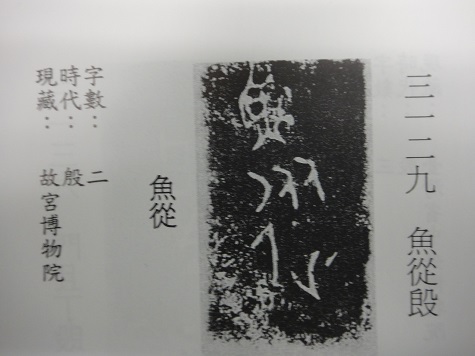 三一二九　魚從𣪘
魚從
字數：二
時代：殷
現藏：故宮博物院